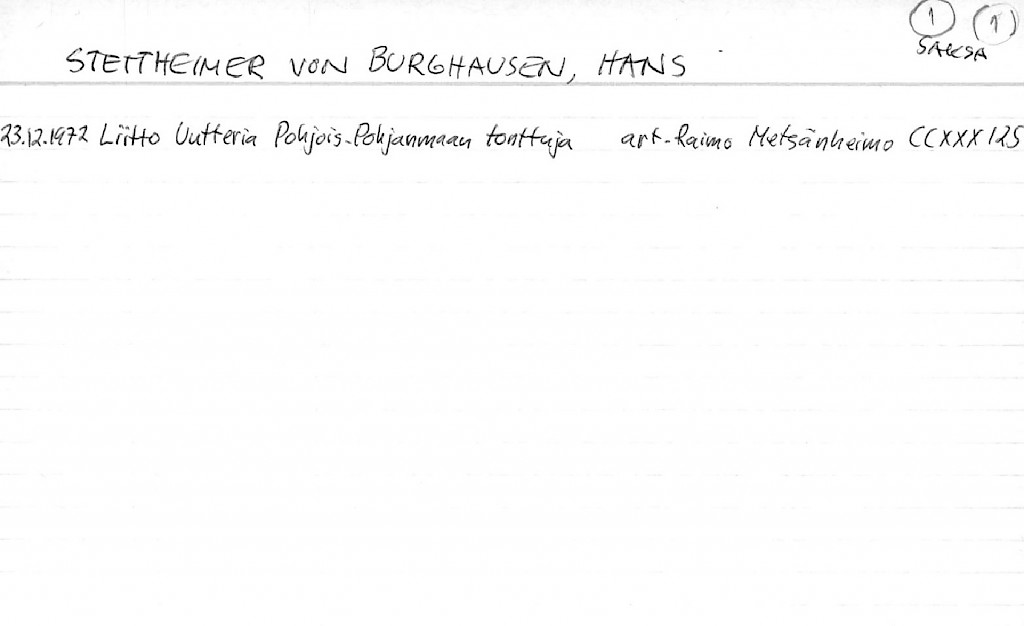 1 1
SAKSA
STETTHEIMER VON BURGHAUSEN, HANS
23.12.1972 Liitto Uutteria Pohjois-Pohjanmaan tonttuja art. Raimo Metsänheimo CCXXX 125